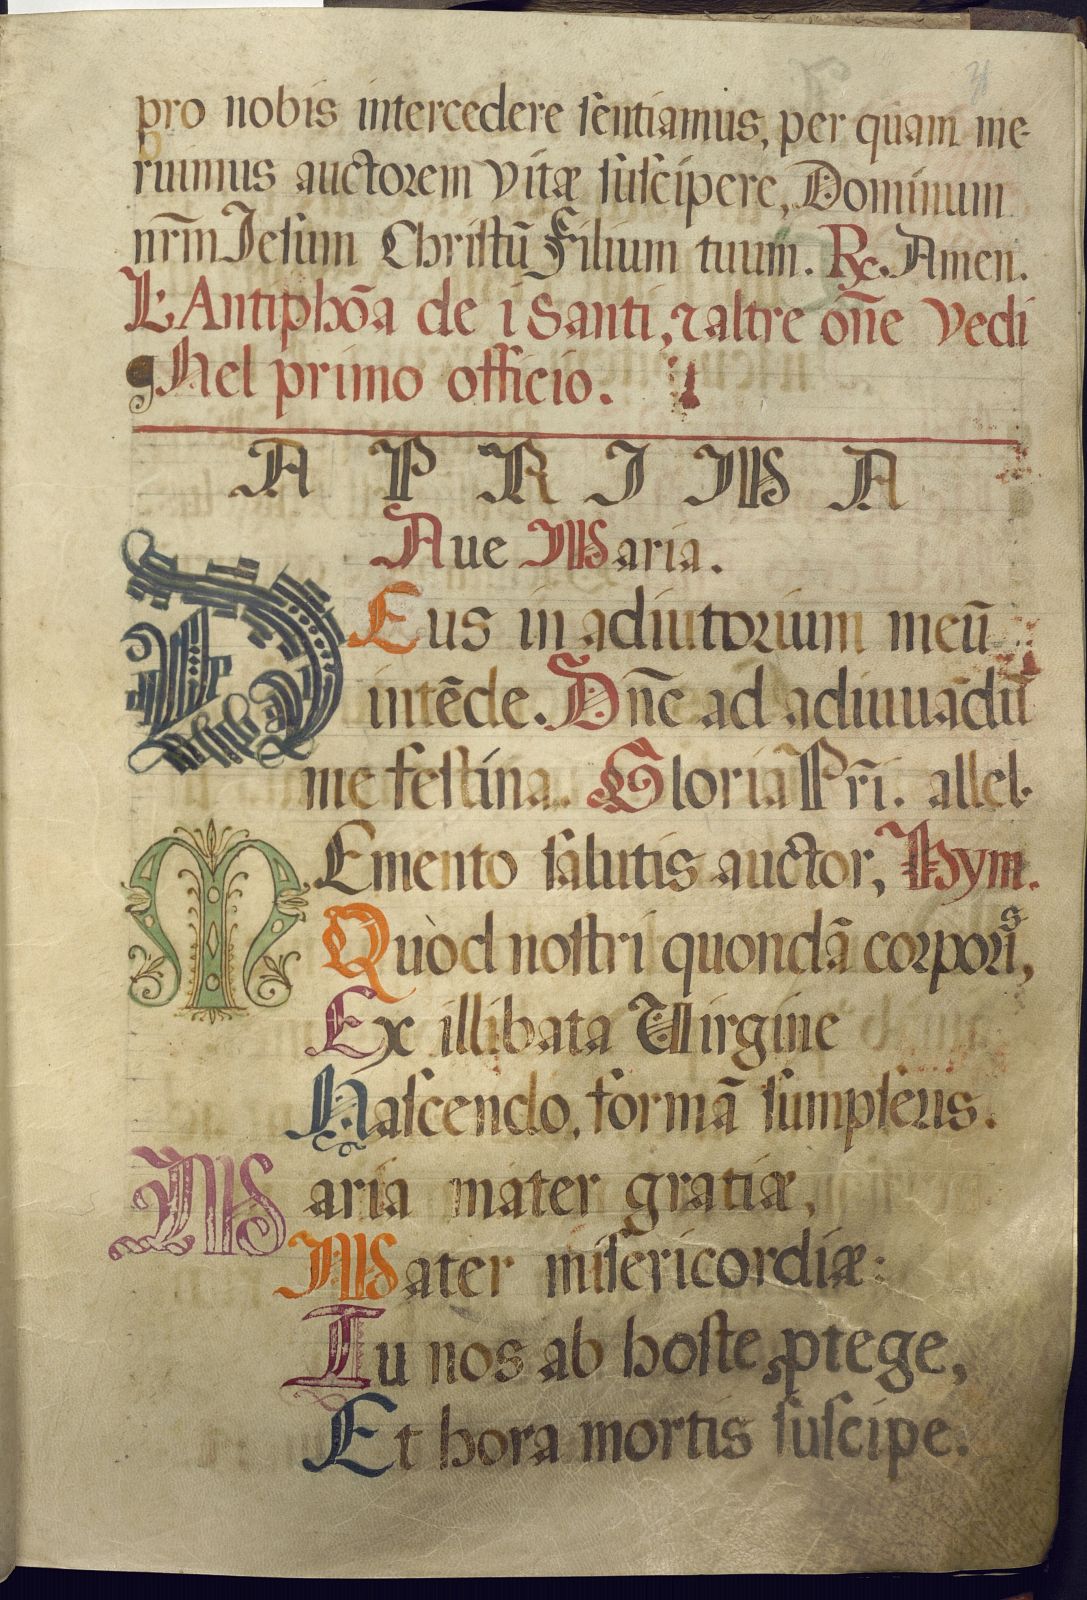 pro nobis intercedere ſentiamus, per quam me-
ruimus auctorem vitæ ſuſcipere, Dominum
nr̄m Ieſum Chriſtū Filium tuum. ℞. Amen.
L'Antiphōa de i Santi, ⁊ altre oñe vedi
nel primo officio.
A PRIMA
Aue Maria.
DEus in adiutorium meū
intēde. Dñe ad adiuuādū
me feſtina. Gloria Pr̄i. allel.
MEmento ſalutis auctor, Hym.
Quòd noſtri quondā corporis,
Ex illibata Virgine
Naſcendo, formā ſumpſeris.
Maria mater gratiæ,
Mater miſericordiæ:
Tu nos ab hoſte ꝓtege,
Et hora mortis ſuſcipe.